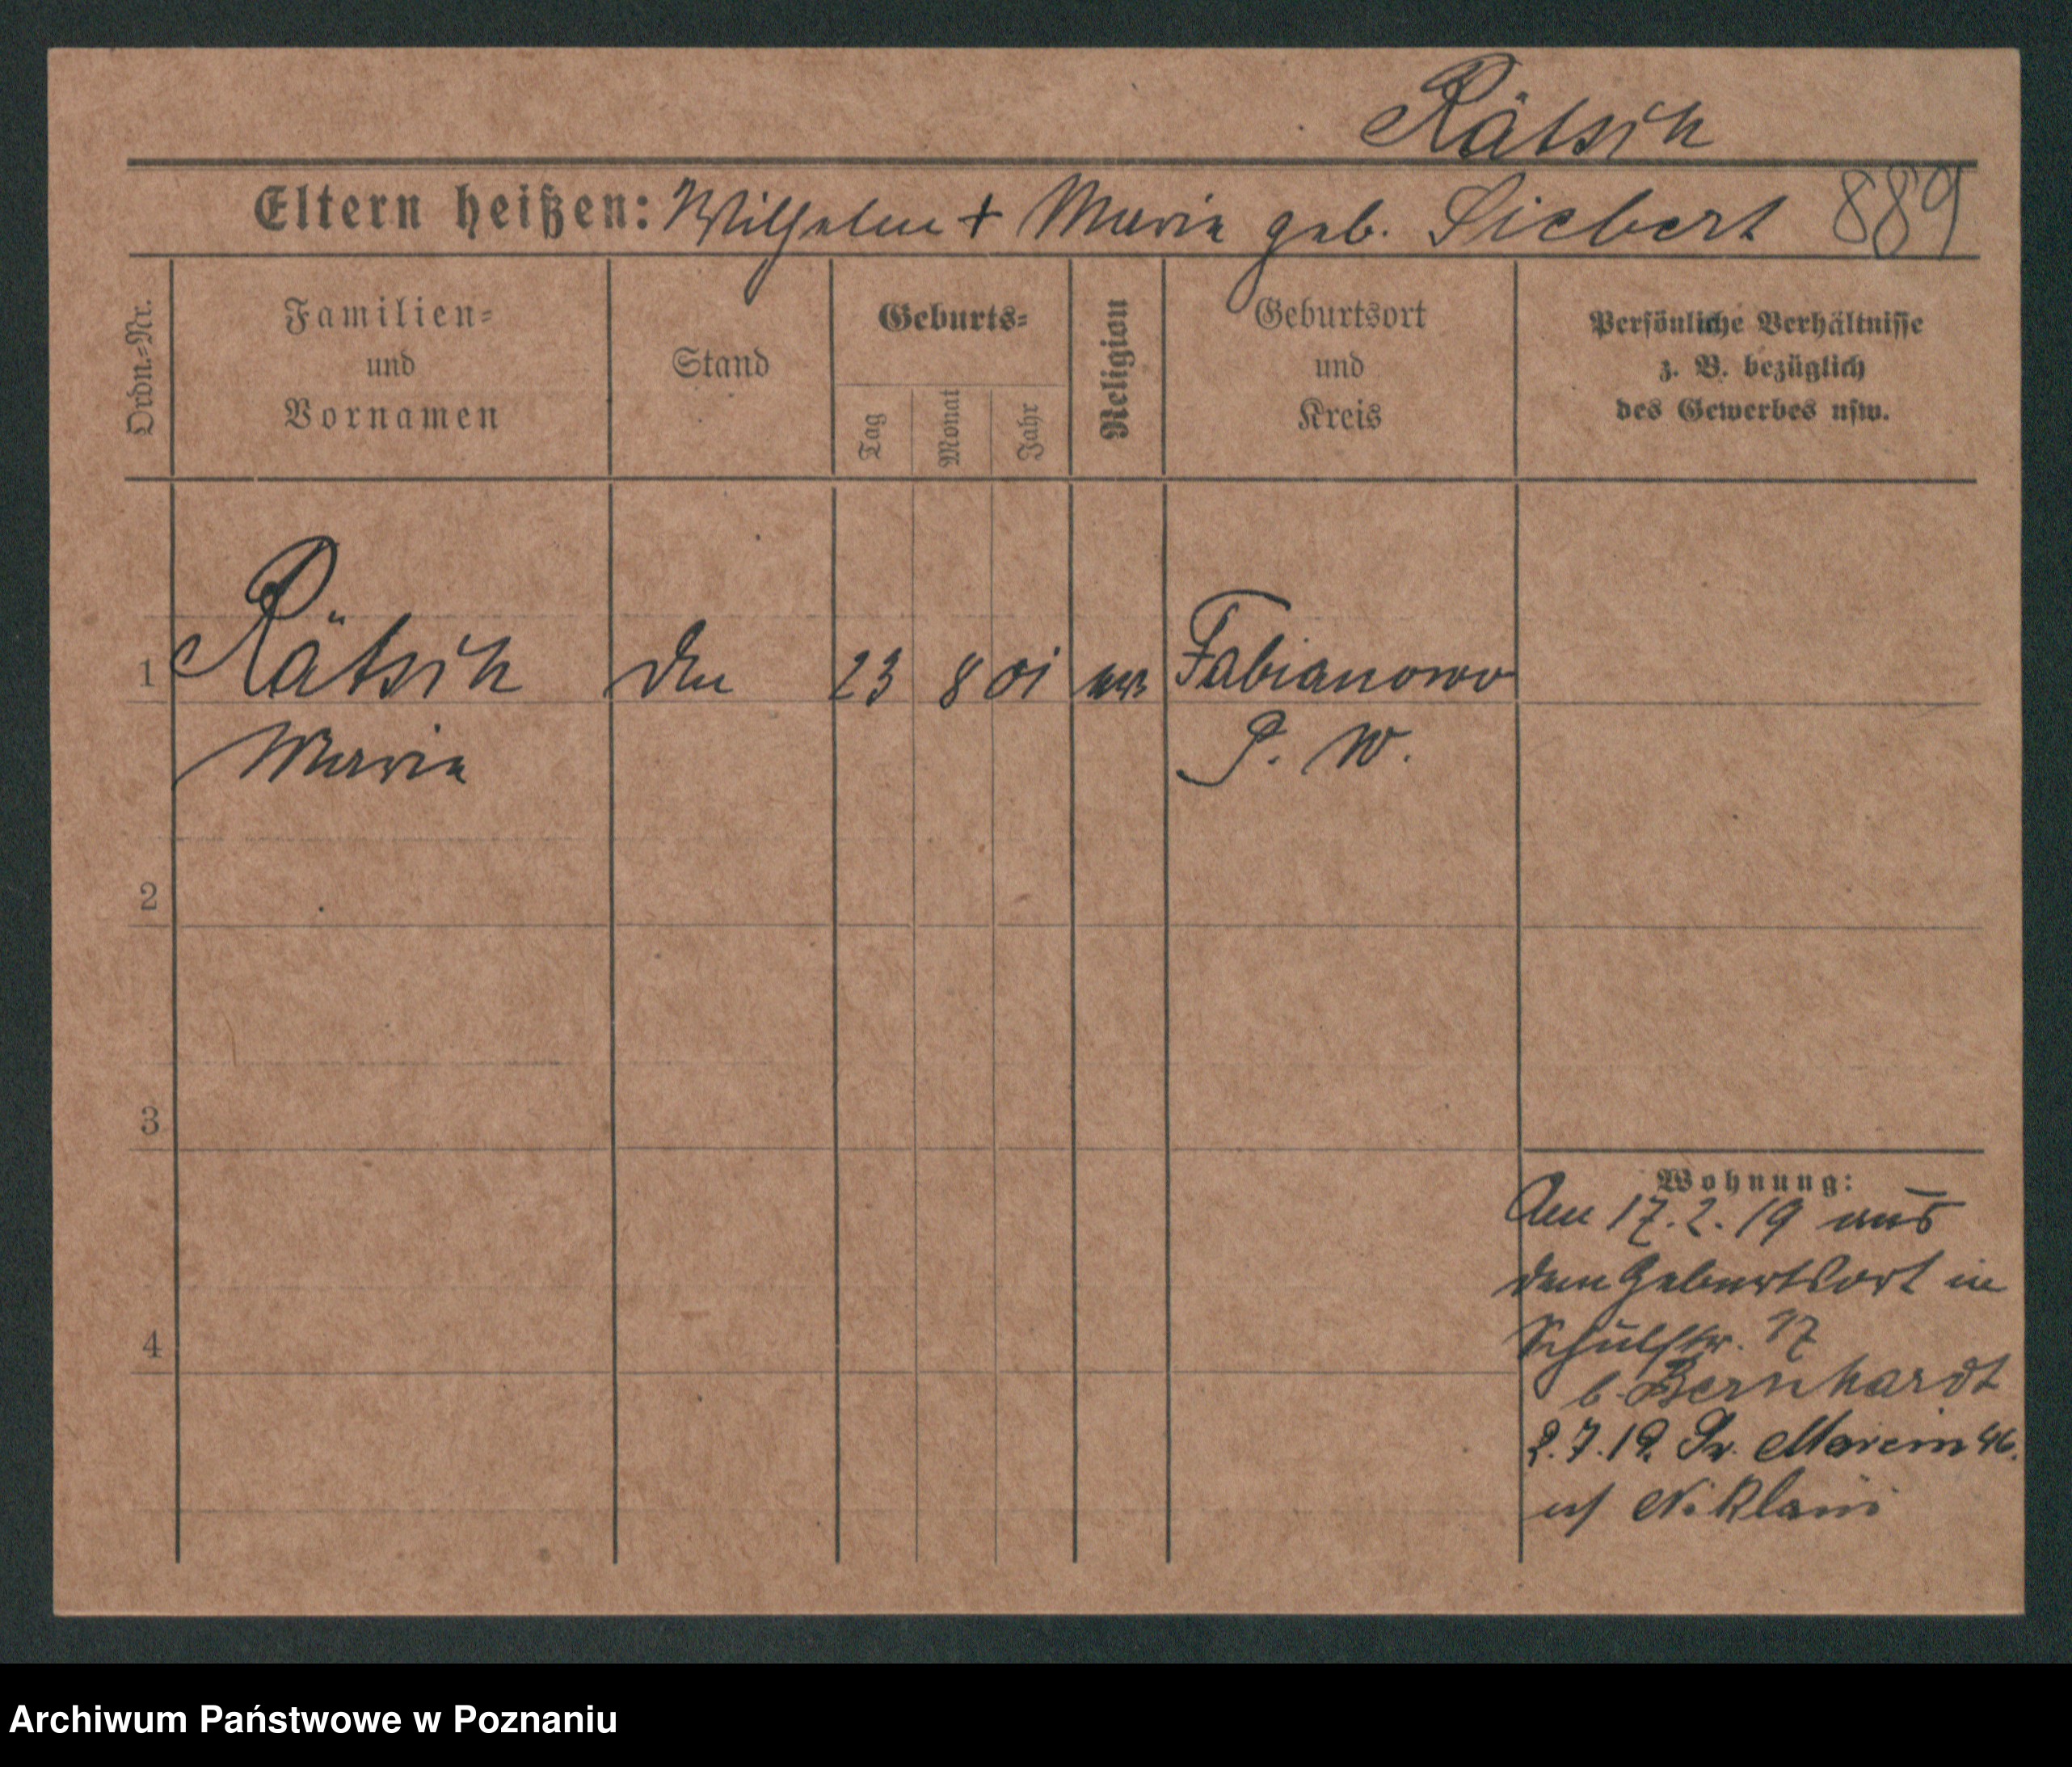 Rätsch
Eltern heißen: Wilhelm + Maria geb. Siebert 889
Ordn.-Nr.
Familien-
und
Vornamen
Stand
Geburts-
Tag
Monat
Jahr
Religion
Geburtsort
und
Kreis
Persönliche Verhältnisse
z. B. bezüglich
des Gewerbes usw.
1 Rätsch 23 8 01 Fabianowo
Maria P. W.
2
3
4
Wohnung:
Am 17.2.19 aus
dem Geburtsort in
Schulstr. 17
b. Bernhardt
2.7.19. Św. Marcin 46.
Archiwum Państwowe w Poznaniu